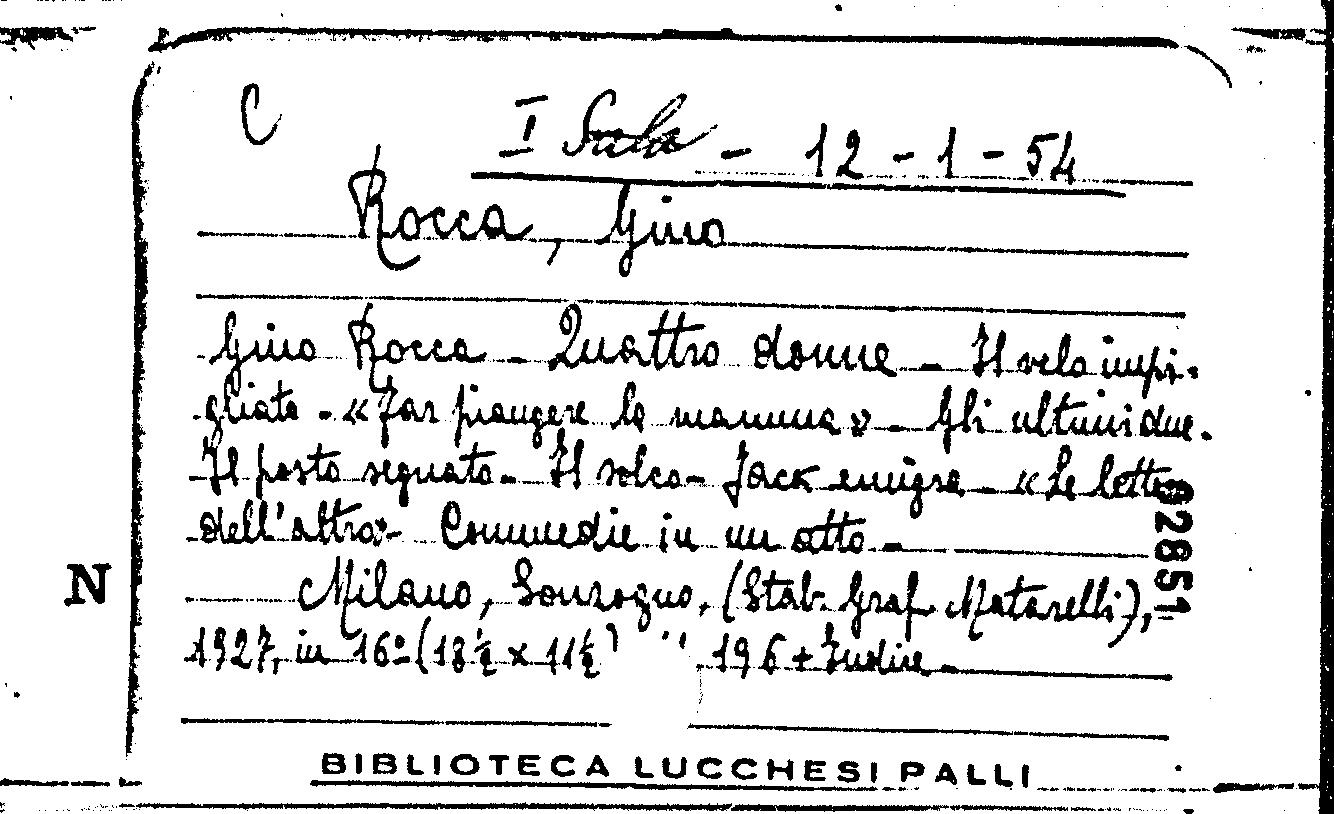 C
I Sala - 12 - 1 - 54
Rocca, Gino
Gino Rocca - Quattro donne - Il velo impi-
gliato - « Far piangere la mamma » - Gli ultimi due.
Il posto segnato - Il solco - Jack emigra - « Le lettere
dell'altra » - Commedie in un atto -
62851
N
Milano, Sonzogno, (Stab. Graf. Matarelli),
1927, in 16º (18½ x 11½) 196 + Indice -
BIBLIOTECA LUCCHESI PALLI